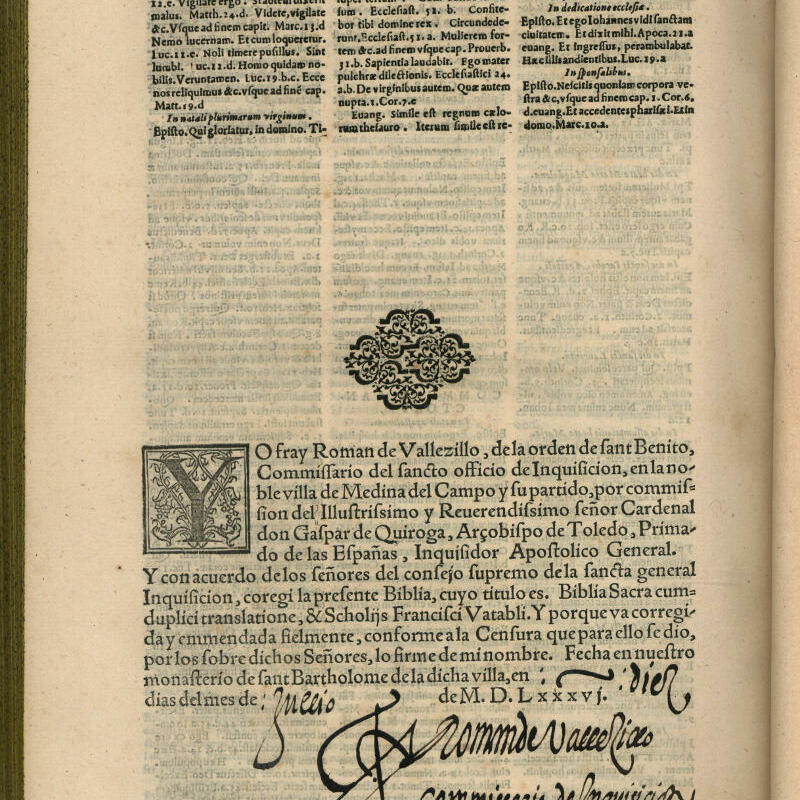 11.e. Vigilate ergo.
maius. Matth.24.d. Videte, vigilate
&c. Vsque ad finem capit. Marc.13.d
Nemo lucernam. Et cum loqueretur.
Luc.11.e. Noli timere pusillus. Sint
lumbi. Luc.12.d. Homo quidam no-
bilis. Veruntamen. Luc.19.b.c. Ecce
nos reliquimus &c. vsque ad finē cap.
Matt.19.d
In natali plurimarum virginum.
Episto. Qui gloriatur, in domino. Ti-
sum. Ecclesiast. 51. b. Confite-
bor tibi domine rex. Circundede-
runt, Ecclesiast. 51. a. Mulierem for-
tem &c. ad finem vsque cap. Prouerb.
31.b. Sapientia laudabit. Ego mater
pulchræ dilectionis. Ecclesiastici 24.
a.b. De virginibus autem. Quæ autem
nupta. 1. Cor.7.e
Euang. Simile est regnum cælo-
rum thesauro. Iterum simile est re-
In dedicatione ecclesiæ.
Episto. Et ego Iohannes vidi sanctam
ciuitatem. Et dixit mihi. Apoca.21.a
euang. Et Ingressus, perambulabat.
Hæc illis audientibus. Luc.19.a
In sponsalibus.
Episto. Nescitis quoniam corpora ve-
stra &c, vsque ad finem cap. 1. Cor.6.
d. euang. Et accedentes pharisæi. Et in
domo. Marc.10.a.
YO fray Roman de Vallezillo, de la orden de sant Benito,
Commissario del sancto officio de Inquisicion, en la no-
ble villa de Medina del Campo y su partido, por commis=
sion del Illustrissimo y Reuerendissimo señor Cardenal
don Gaspar de Quiroga, Arçobispo de Toledo, Prima-
do de las Españas, Inquisidor Apostolico General.
Y con acuerdo de los señores del consejo supremo de la sancta general
Inquisicion, coregi la presente Biblia, cuyo titulo es. Biblia Sacra cum=
duplici translatione, & Scholijs Francisci Vatabli. Y porque va corregi-
da y emmendada fielmente, conforme a la Censura que para ello se dio,
por los sobre dichos Señores, lo firme de mi nombre. Fecha en nuestro
monasterio de sant Bartholome de la dicha villa, en : diez
dias del mes de : Jullio de M. D. Lxxxvj.
Roman de Vallezillo
Commissario de Inquisicion